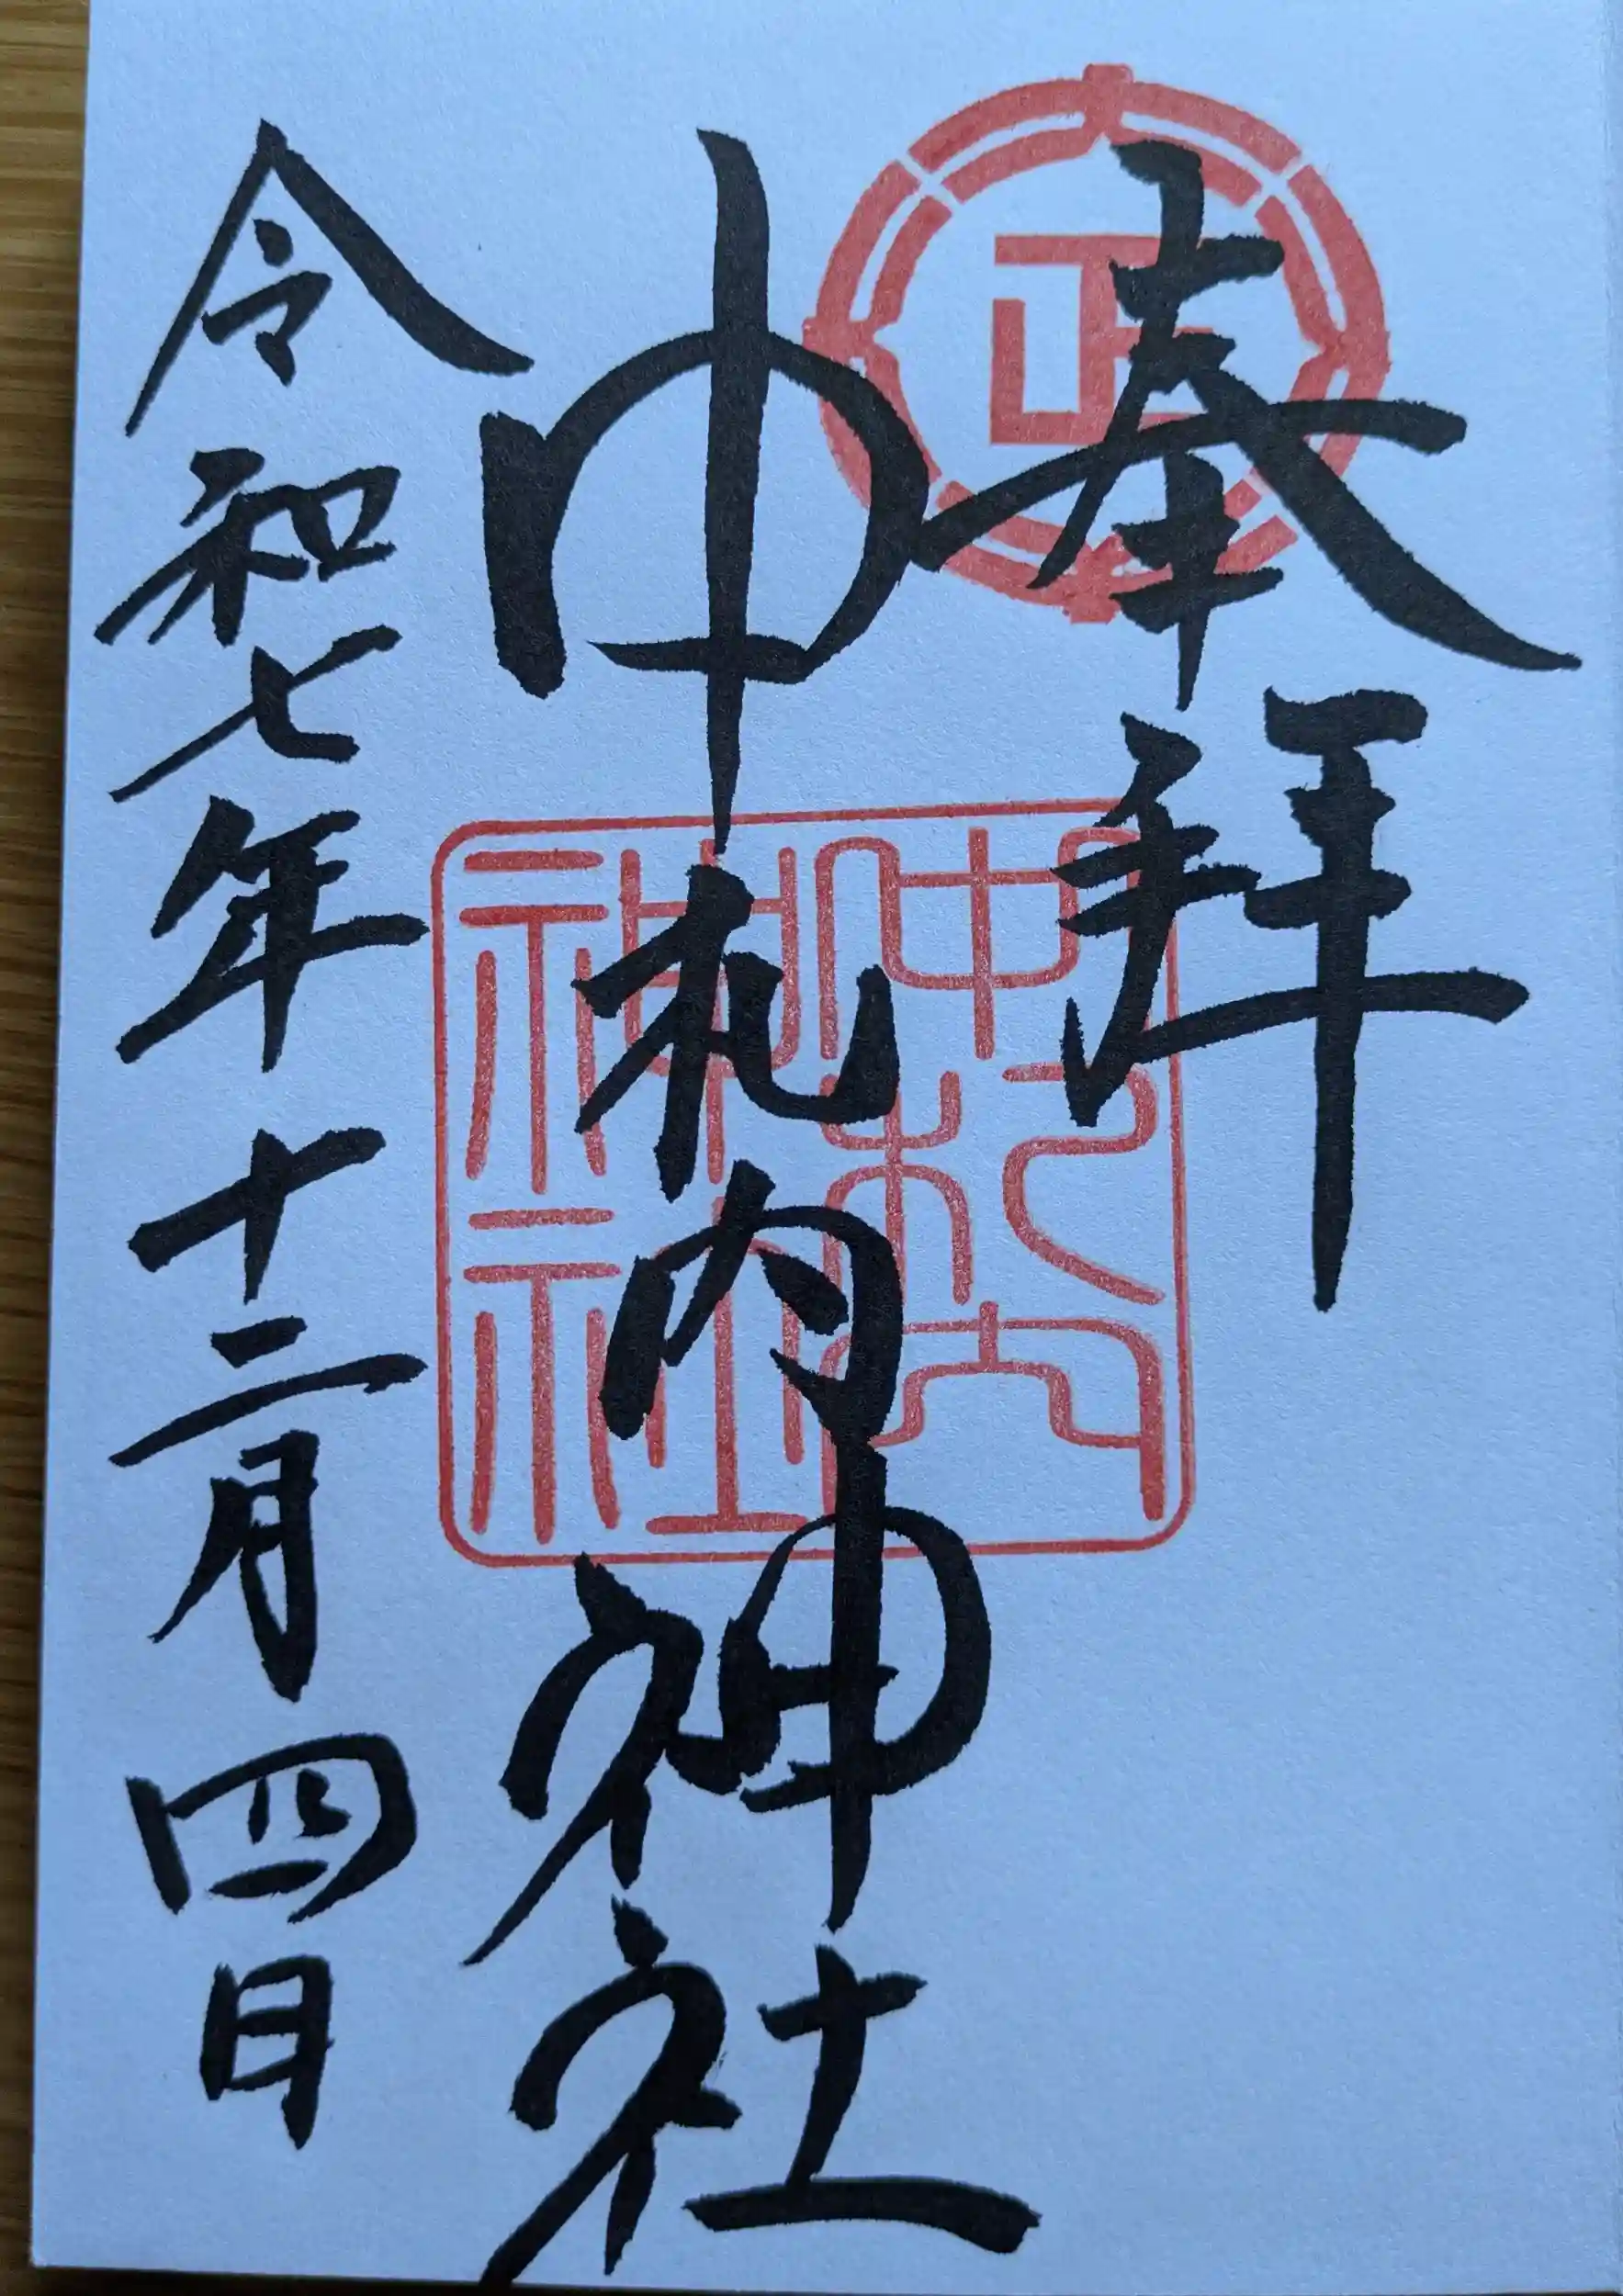 奉拝
中札内神社
令和七年十二月四日
正
中札内神社